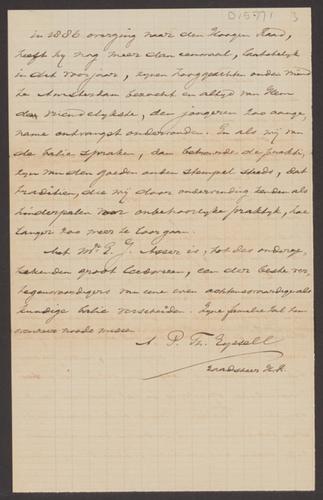 D15771 3
in 1886 overging naar den Hoogen Raad,
heeft hij nog meer dan eenmaal, laatstelijk
in dit voorjaar, zijnen hooggeachten ouden vriend
te Amsterdam bezocht en altijd van Hem
de vriendelijkste, den jongeren zoo aange-
name ontvangst ondervonden. En als wij van
de balie spraken, dan betreurde de practi-
zijn van den goeden ouden stempel steeds, dat
tradities, die wij door ondervinding kenden als
hinderpalen voor onbehoorlijke praktijk, hoe
langer zoo meer te loor gaan.
Met Mr. E. J. Asser is, tot des onderge-
teekenden groot leedwezen, een der beste ver-
tegenwoordigers van eene even achtenswaardige als
kundige balie verscheiden. Zijne familie zal hem
noode missen
A. P. Th. Eyssell
raadsheer H.R.